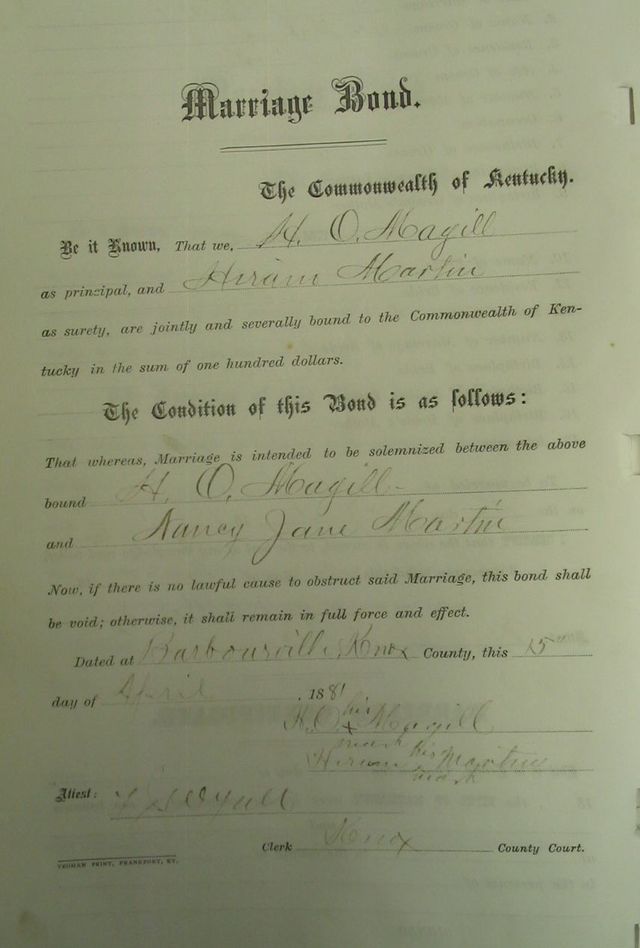 Marriage Bond.
The Commonwealth of Kentucky.
Be it Known, That we, H. O. Magill
as principal, and Hiram Martin
as surety, are jointly and severally bound to the Commonwealth of Ken-
tucky in the sum of one hundred dollars.
The Condition of this Bond is as follows:
That whereas, Marriage is intended to be solemnized between the above
bound H. O. Magill
and Nancy Jane Martin
Now, if there is no lawful cause to obstruct said Marriage, this bond shall
be void; otherwise, it shall remain in full force and effect.
Dated at Barboursville, Knox County, this 15
day of April, 1881
H. O. his x Magill
mark
Hiram his Martin
mark
Attest:
Clerk Knox County Court.
YEOMAN PRINT, FRANKFORT, KY.